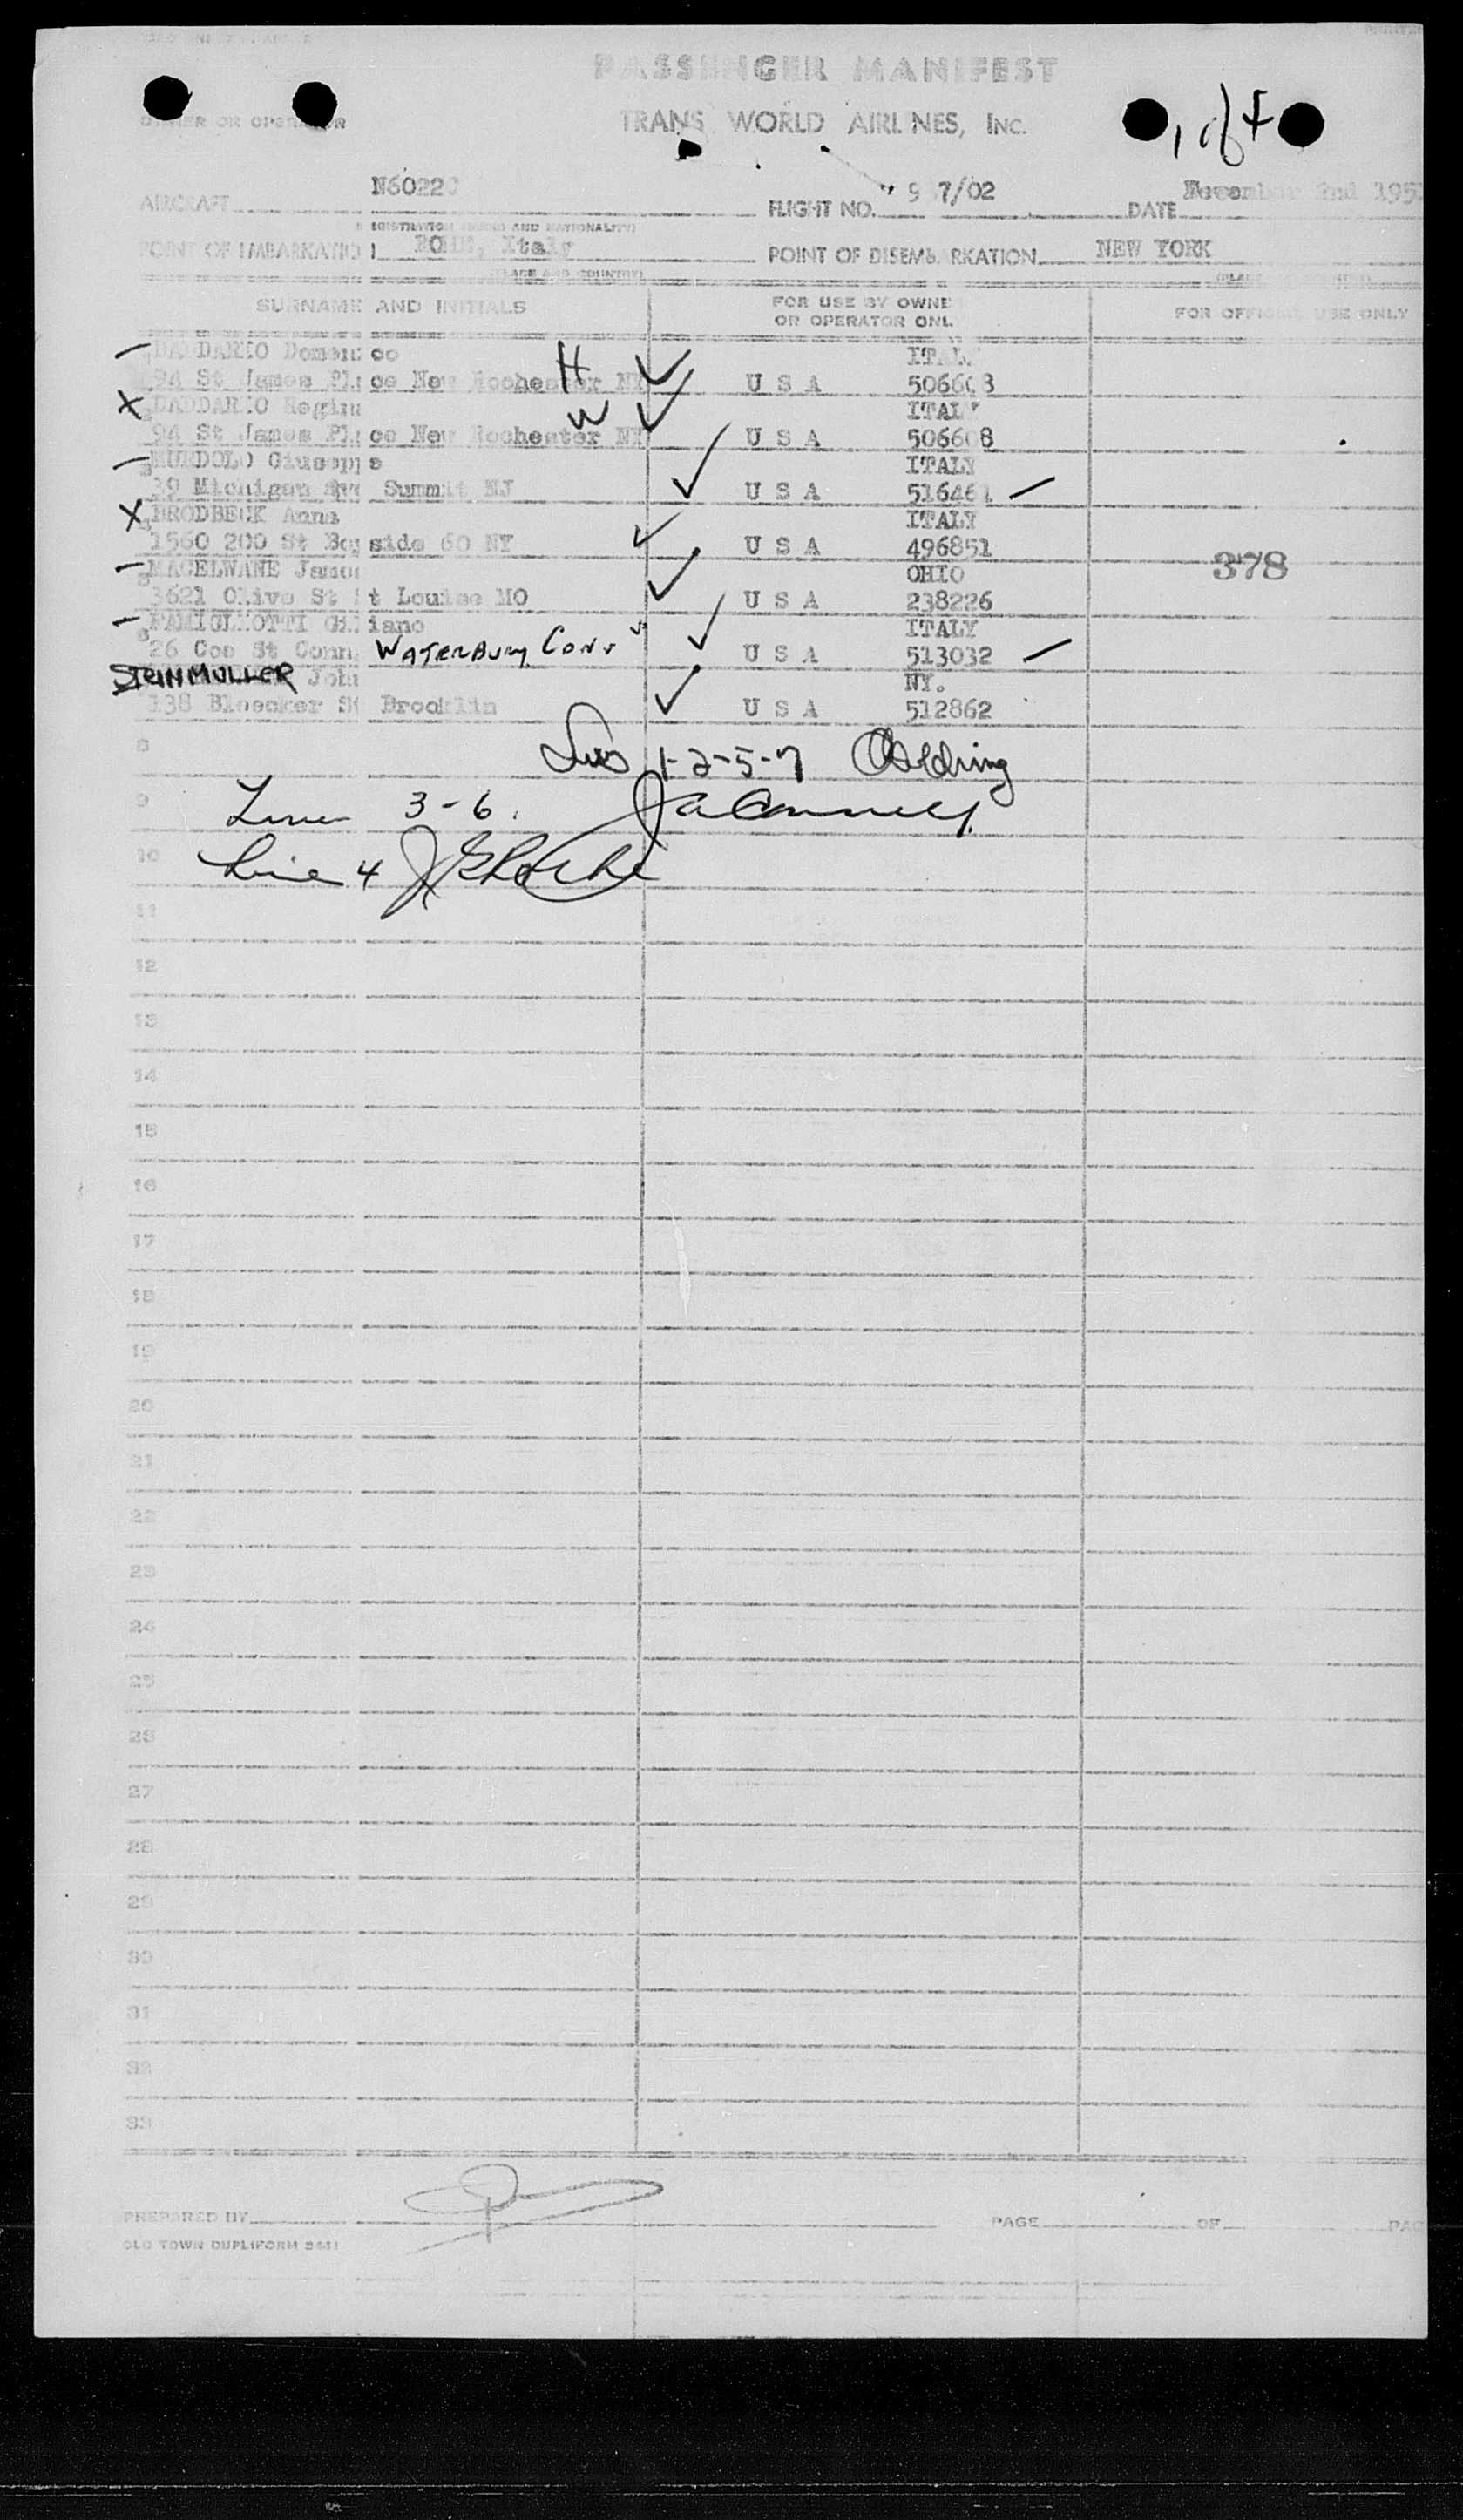 PASSENGER MANIFEST
OWNER OR OPERATOR TRANS WORLD AIRLINES, INC. 1 of 4
AIRCRAFT N6022 FLIGHT NO. 9 7/02 DATE November 2nd 195
(REGISTRATION AND NATIONALITY)
POINT OF EMBARKATION ROME, Italy POINT OF DISEMBARKATION NEW YORK
(PLACE AND COUNTRY)
SURNAME AND INITIALS FOR USE BY OWNER OR OPERATOR ONLY FOR OFFICIAL USE ONLY
DADDARIO Domenico ITALY
94 St James Place New Rochester NY H U S A 506608
DADDARIO Regina ITALY
94 St James Place New Rochester NY W U S A 506608
Giuseppe ITALY
39 Michigan Ave Summit NJ U S A 516461
BRODBECK Anna ITALY
1560 200 St Bayside 60 NY U S A 496851
378
MACELWANE James OHIO
3621 Olive St St Louise MO U S A 238226
FAMIGLIOTTI Giuliano ITALY
26 Coe St Conn. WATERBURY CONN U S A 513032
STEINMULLER John NY.
138 Bleecker St Brooklin U S A 512862
8 1-2-5-7
9 Lines 3-6.
10 Line 4
11
12
13
14
15
16
17
18
19
20
21
22
23
24
25
26
27
28
29
30
31
32
33
PREPARED BY PAGE OF PAG
OLD TOWN DUPLIFORM